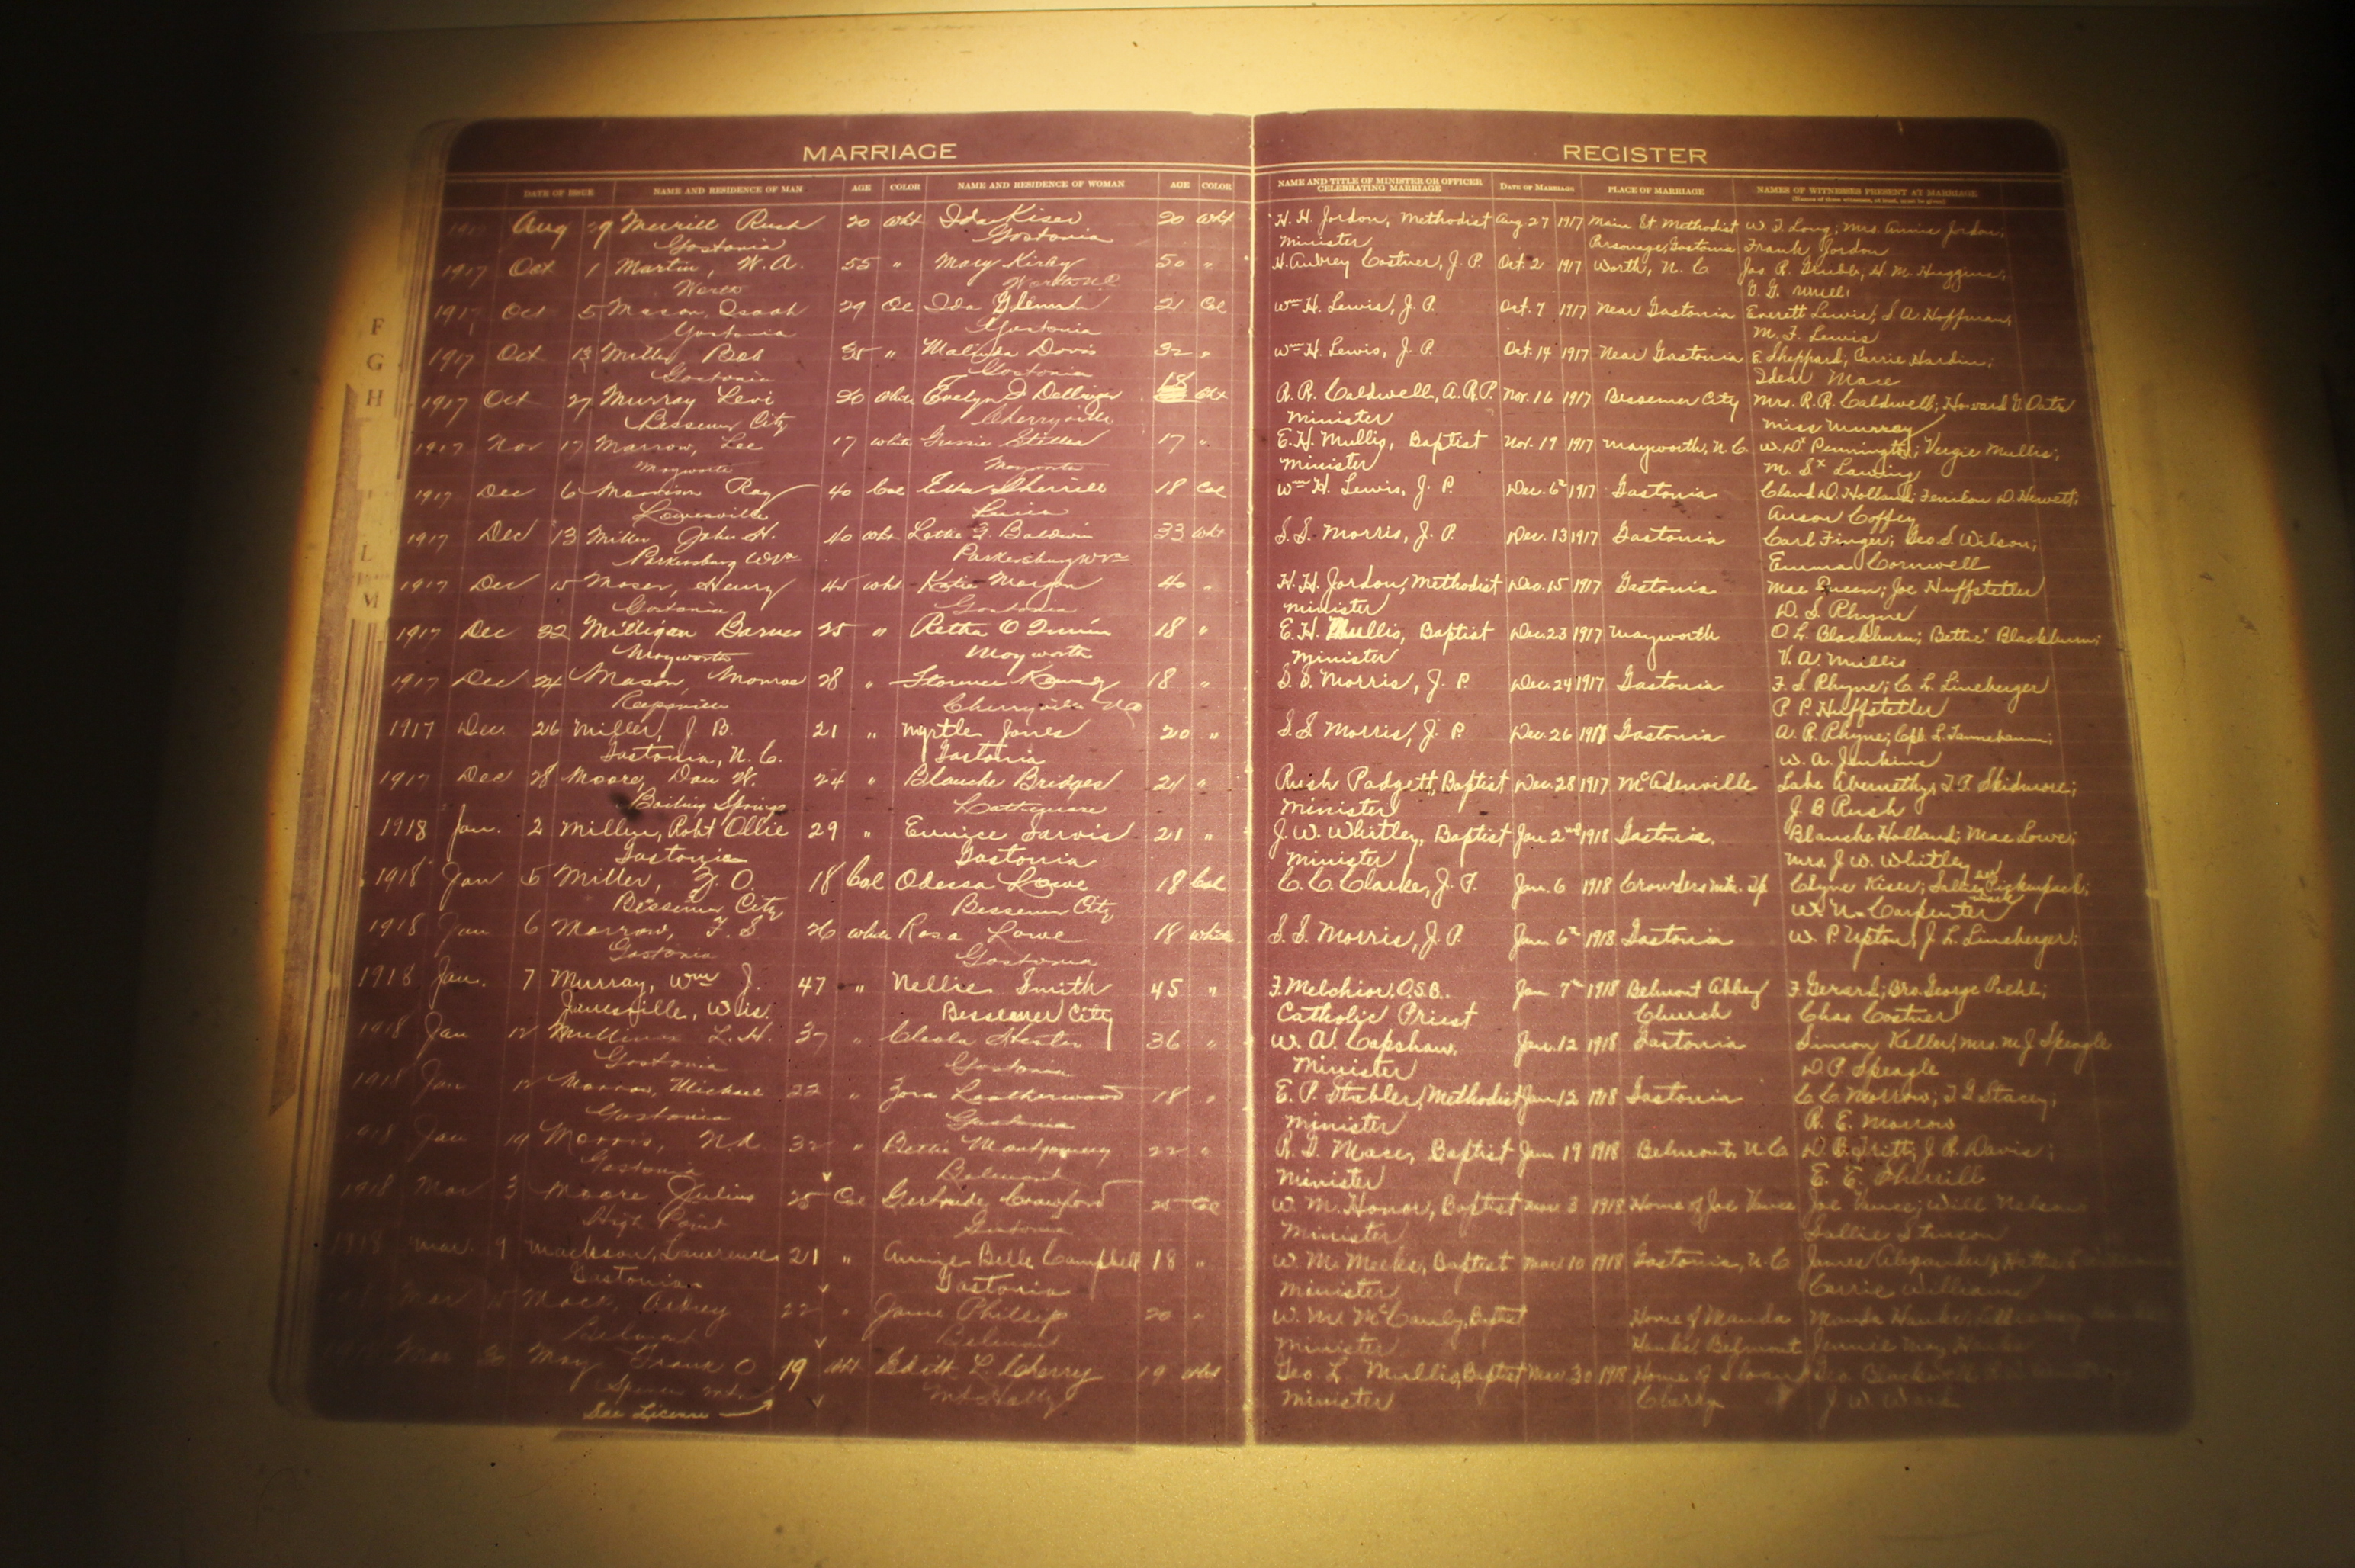 MARRIAGE
REGISTER
DATE OF ISSUE NAME AND RESIDENCE OF MAN AGE COLOR NAME AND RESIDENCE OF WOMAN AGE COLOR NAME AND TITLE OF MINISTER OR OFFICER CELEBRATING MARRIAGE DATE OF MARRIAGE PLACE OF MARRIAGE NAMES OF WITNESSES PRESENT AT MARRIAGE
(Names of three witnesses, at least, must be given)
F
G
H
L
M
Aug 29 Merrill Rush 20 Wht Ida Kiser 20 Wht H. H. Jordon, Methodist Aug 27 1917 Main St. Methodist W. T. Long; Mrs. Annie Jordon;
Gastonia Gastonia Minister Parsonage, Gastonia Frank Jordon
1917 Oct 1 Martin, W. A. 55 " Mary Kirby 50 " H. Aubrey Costner, J. P. Oct. 2 1917 Worth, N. C Jas R. Grubb, H. M. Huggins;
Worth
1917 Oct 5 Mason, Isaah 29 Col Ida 21 Col Wm H. Lewis, J. P. Oct. 7 1917 Near Gastonia Everett Lewis; S. A. Hoffman;
Gastonia Gastonia M. F. Lewis
1917 Oct 13 Miller Bob 35 " Malinda Davis 32 " Wm H. Lewis, J. P. Oct. 14 1917 Near Gastonia E. Sheppard; Carrie Hardin;
Gastonia Gastonia
1917 Oct 27 Murray Levi 20 White Evelyn I Dellinger 18 Wht R. R. Caldwell, A.R.P. Nov. 16 1917 Bessemer City Mrs. R. R. Caldwell; Howard G. Oats
Bessemer City Cherryville Minister Miss Murray
1917 Nov 17 Marrow, Lee 17 White Gussie 17 " E. H. Mullis, Baptist Nov. 19 1917 Mayworth, N. C. W. D. Pennington; Vergie Mullis;
Mayworth Mayworth Minister
1917 Dec 6 Ray 40 Col Etta Sherrill 18 Col Wm H. Lewis, J. P. Dec. 6th 1917 Gastonia Claud D. Holland; D. Hewett;
Lowesville Lucia Anson Coffey
1917 Dec 13 Miller John H. 40 Wht Baldwin 33 Wht S. S. Morris, J. P. Dec. 13 1917 Gastonia Carl Finger; Geo. S Wilson;
Parkersburg W Va Parkersburg W Va Emma Cornwell
1917 Dec 15 Moser, Henry 45 Wht Katie Morgan 40 " H. H. Jordon, Methodist Dec. 15 1917 Gastonia Mae Queen; Joe Huffstetler
Gastonia Gastonia Minister D. S. Rhyne
1917 Dec 22 Milligan Barnes 25 " Retha O Quinn 18 " E. H. Mullis, Baptist Dec. 23 1917 Mayworth O. L. Blackburn; Bettie Blackburn;
Mayworth Mayworth Minister V. A. Mullis
1917 Dec 24 Mason, Monroe 28 " Florence 18 " S. S. Morris, J. P. Dec. 24 1917 Gastonia F. S. Rhyne; C. L. Lineberger
Reepsville Cherryville NC P. P. Huffstetler
1917 Dec. 26 Miller, J. B. 21 " Myrtle Jones 20 " S. S Morris, J. P. Dec. 26 1918 Gastonia A. R. Rhyne;
Gastonia, N. C. Gastonia W. A. Jenkins
1917 Dec 28 Moore, Dan W. 24 " Blanche Bridges 21 " Rush Padgett, Baptist Dec. 28 1917 McAdenville Lake Abernethy; Skidmore;
Boiling Springs Lattimore Minister J B Rush
1918 Jan. 2 Miller, Robt Ollie 29 " Eunice Jarvis 21 " J. W. Whitley, Baptist Jan 2nd 1918 Gastonia. Blanche Holland; Mae Lowe;
Gastonia Gastonia Minister Mrs. J. W. Whitley
1918 Jan 5 Miller, O. 18 Col Odessa Lowe 18 Col C. C. Clarke, J. P. Jan. 6 1918 Crowders Mtn. Tp Clyne Kiser;
Bessemer City Bessemer City W. N. Carpenter
1918 Jan 6 Morrow, F. S 26 White Rosa Lowe 18 White S. S. Morris, J. P. Jan 6th 1918 Gastonia W. P. Upton; J. L. Lineberger;
Gastonia Gastonia
1918 Jan. 7 Murray, Wm J. 47 " Nellie Smith 45 " F. Melchior. O.S.B. Jan 7th 1918 Belmont Abbey F. Gerard; Bro. George Poehl;
Janesville, Wis. Bessemer City Catholic Priest Church Chas. Costner
1918 Jan 12 Mullinax L. H. 37 " Cleola Hester 36 " W. A. Capshaw, Jan. 12 1918 Gastonia Simon Keller; Mrs. M. J Speagle
Gastonia Gastonia Minister D. P. Speagle
1918 Jan 12 Morrow, Michael 22 " Zora Leatherwood 18 " E. P. Stabler, Methodist Jan 12 1918 Gastonia C. C. Morrow; Stacey;
Gastonia Gastonia Minister R. E. Morrow
1918 Jan 19 Morris, 32 " Bettie Montgomery 22 " R. G. Mace, Baptist Jan 19 1918 Belmont, N. C. D. B. Fritts; J. R. Davis;
Gastonia Belmont Minister E. E. Sherrill
1918 Mar 3 Moore Julius 25 Col Gertrude Crawford 25 Col W. M. Honor, Baptist Mar. 3 1918 Home of Joe Vance Joe Vance; Will Nelson
High Point Gastonia Minister Sallie Stinson
1918 Mar. 9 Mackson, Lawrence 21 " Annie Belle Campbell 18 " W. M. Meeks, Baptist Mar. 10 1918 Gastonia, N. C James Alexander;
Gastonia Gastonia Minister Carrie Williams
Mar 15 Mack, Aubrey 22 " Janie Phillip 20 " Baptist Home of Manda Manda Hanks;
Belmont Belmont Minister Hanks Belmont Jennie May Hanks
Mar 30 May Frank O 19 Wht Edith L. Cherry 19 Wht Geo. L. Mullis, Baptist Mar. 30 1918 Home of Geo.
Spencer Mtn. Mt Holly Minister Cherry J. W. Ward
See License